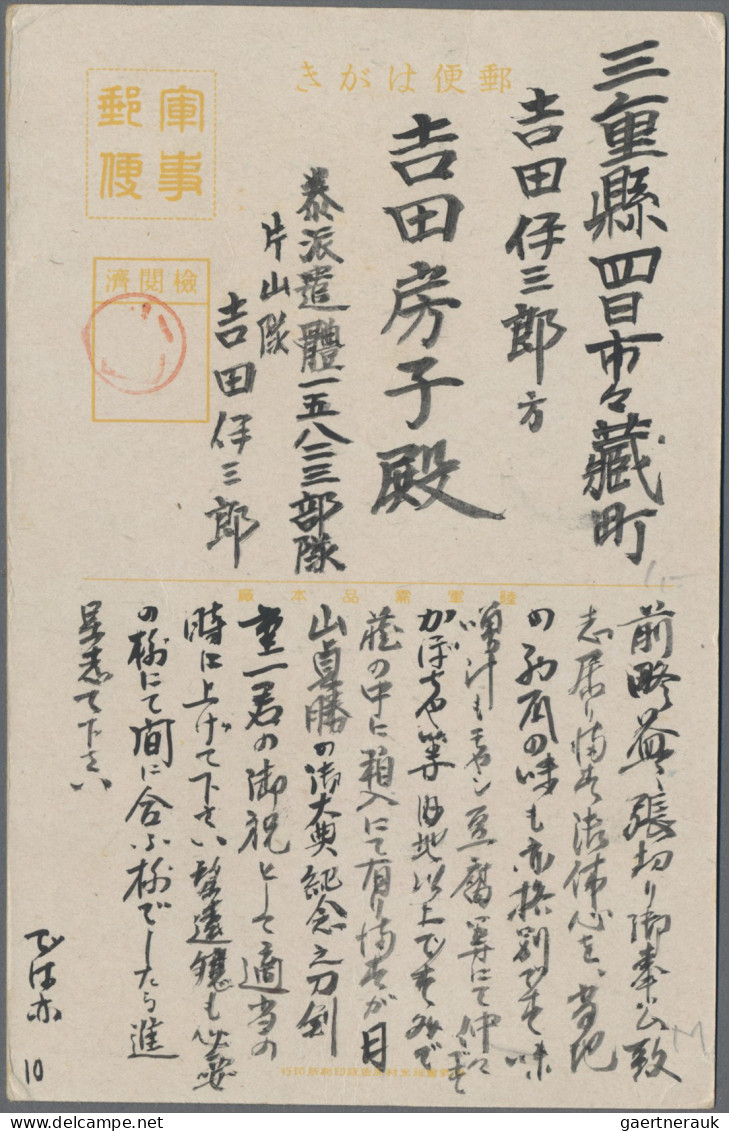 郵便はがき
軍事
郵便
檢閲濟
三重縣四日市々藏町
吉田伊三郎方
吉田房子殿
泰派遣體一五八二三部隊
片山隊
吉田伊三郎
陸軍需品本廠
前略益々張切り御奉公致
志居り候 御休心を、当地
の の味も亦格別です 味
噌汁もモヤシ豆腐等にて仲々
かぼちや等内地以上です 
藏の中に箱入にて有り が目
山貞勝の御大典紀念之刀剣
重一君の御祝として適当の
時に上げて下さい 双眼鏡も必要
の様にて間に合ふ様でしたら進
呈志て下さい
では亦
10
gaertnerauk
delcampe.net